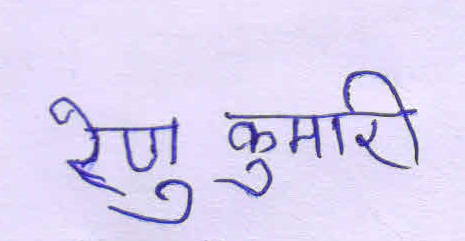 रेणु कुमारी